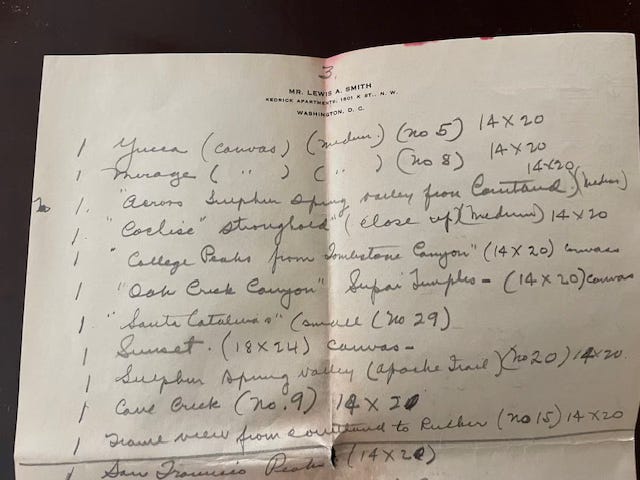 3.
MR. LEWIS A. SMITH
KEDRICK APARTMENTS, 1801 K ST., N. W.
WASHINGTON, D. C.
1 Yucca (canvas) (medium.) (no 5) 14 X 20
1 Mirage ( " " ) ( " ) (no 8) 14 X 20
1. "Across Sulphur Spring Valley from Courtland. (Medium) 14 X 20
1 "Cochise" Stronghold" (close up) (medium) 14 X 20
1 "College Peaks from Tombstone Canyon" (14 X 20) canvas
1 "Oak Creek Canyon" Supai Temples - (14 X 20) canvas
1 "Santa Catalinas" (small (no 29)
1 Sunset. (18 X 24) canvas -
1 Sulphur Spring Valley (Apache Trail) (no 20) 14 X 20.
1 Cave Creek (no. 9) 14 X 20
1 view from Courtland to (no 15) 14 X 20
1 San Francisco Peaks (14 X 20)